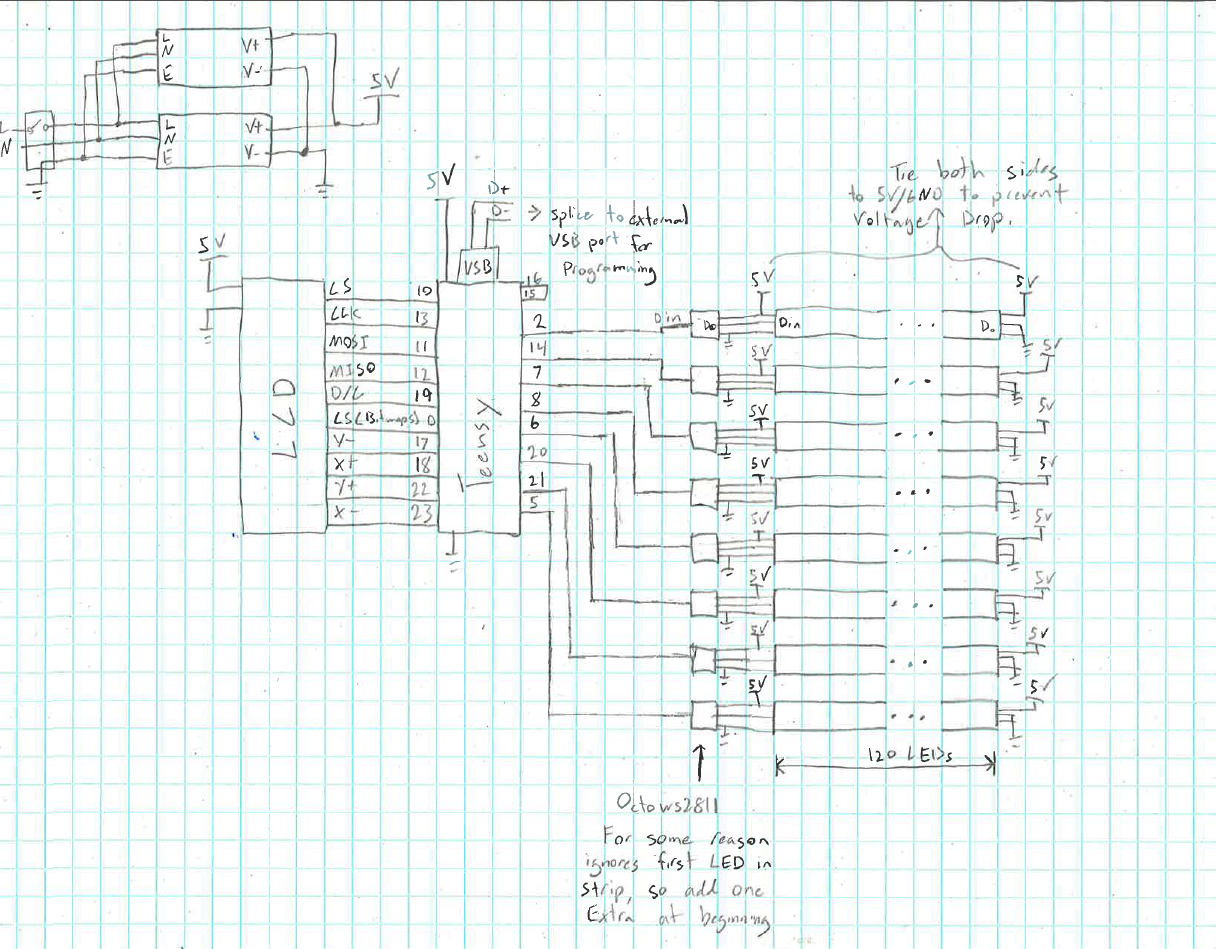 L
N
E
V+
V-
L
N
E
V+
V-
L
N
5V
5V
D+
D-
→ splice to external
USB port for
Programming
USB
Tie both sides
to 5V/GND to prevent
Voltage Drop.
5V
LCD
LS 10
CLK 13
MOSI 11
MISO 12
D/C 19
LS(Bitmaps) 0
Y- 17
X+ 18
Y+ 22
X- 23
Teensy
16
15
2
14
7
8
6
20
21
5
Din
Do
5V
Din
...
Do
5V
5V
...
5V
5V
...
5V
5V
...
5V
5V
...
5V
5V
...
5V
5V
...
5V
5V
...
5V
120 LEDs
Octows2811
For some reason
ignores first LED in
strip, so add one
Extra at beginning